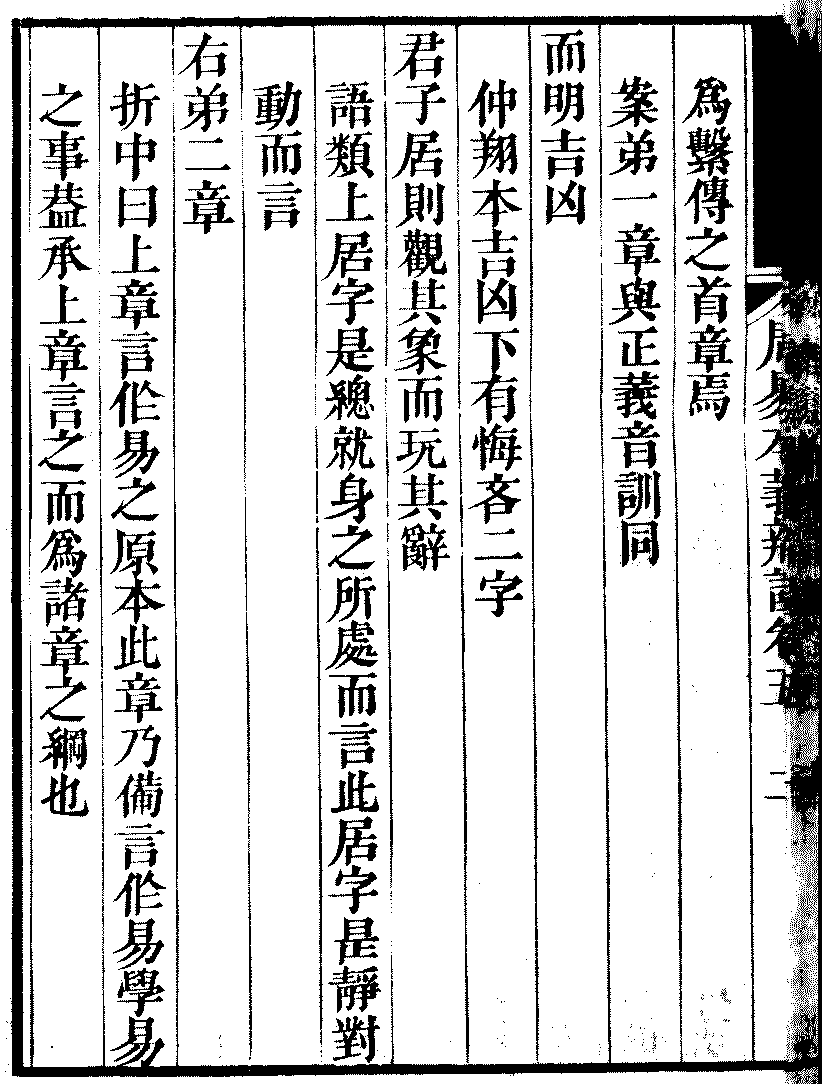 周易本義辨證卷五 二
爲繫傳之首章焉
案弟一章與正義音訓同
而明吉凶
仲翔本吉凶下有悔吝二字
君子居則觀其象而玩其辭
語類上居字是總就身之所處而言此居字是靜對
動而言
右弟二章
折中曰上章言作易之原本此章乃備言作易學易
之事葢承上章言之而爲諸章之綱也